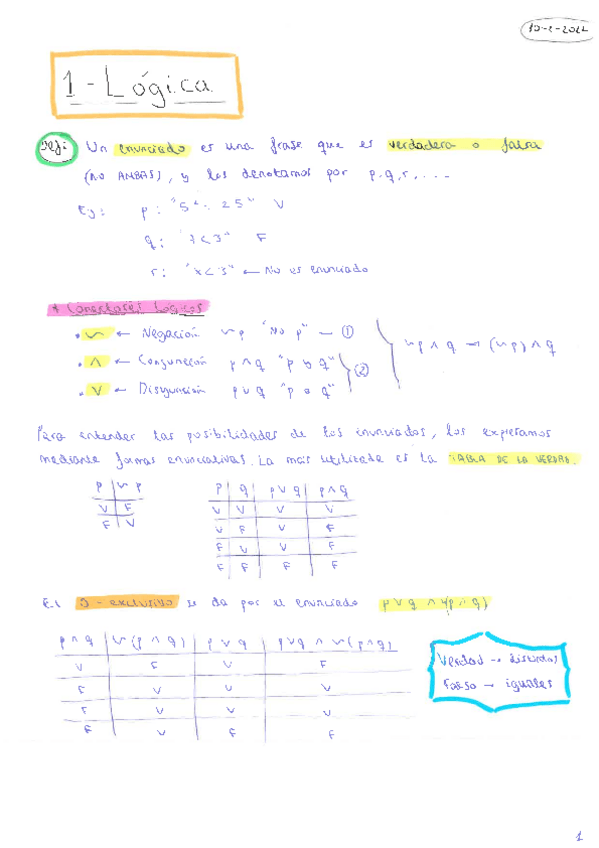 1 - Lógica
Def: Un enunciado es una frase que es verdadera o falsa
(NO AMBAS), y los denotamos por p, q, r, ....
Ej: p: "5² = 25" V
q: "7<3" F
r: "x<3" ← No es enunciado
* Conectores Lógicos
• ~ ← Negación ~p "No p" — ①
• ∧ ← Conjunción p∧q "p y q"
② ~p∧q → (~p)∧q
• ∨ ← Disyunción p∨q "p o q"
Para entender las posibilidades de los enunciados, los expresamos
mediante formas enunciativas. La más utilizada es la TABLA DE LA VERDAD.
p | ~p
V | F
F | V
p | q | p∨q | p∧q
V | V | V | V
V | F | V | F
F | V | V | F
F | F | F | F
El O-exclusivo se da por el enunciado p∨q ∧ ~(p∧q)
p∧q | ~(p∧q) | p∨q | p∨q ∧ ~(p∧q)
V | F | V | F
F | V | V | V
F | V | V | V
F | V | F | F
Verdad → distintos
Falso → iguales
1